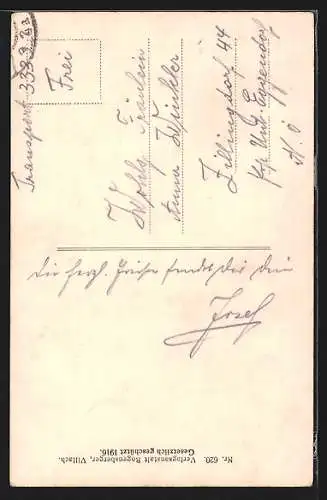 Transport 3383/63
Frei
Wohlg. Fräulein
Anna Winkler
Zillingdorf 44
N. Ö
Die herzl. Grüße sendet dir dein
Josef
Nr. 620. Verlagsanstalt Bugensberger, Villach.
Gesetzlich geschützt 1916.